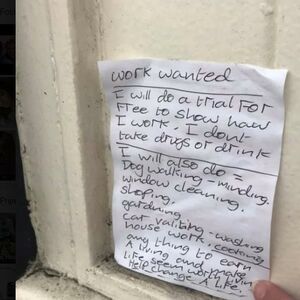 work wanted
I will do a trial For
Free to show how
I work. I dont
take drugs or drink
I will also do =
Dog walking - minding.
window cleaning.
shoping.
gardning.
car valiting - washing
house work,
any thing to earn
A living and make
Life seem worth living
Help change A Life.